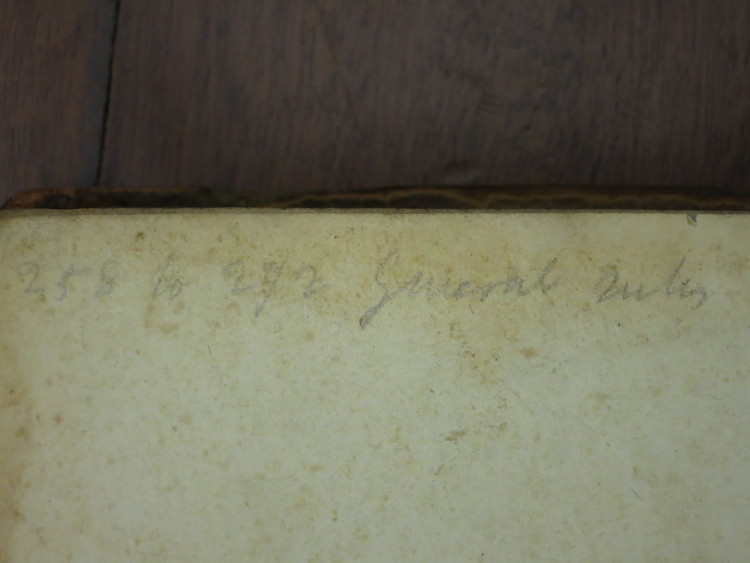 258 to 272 General rules